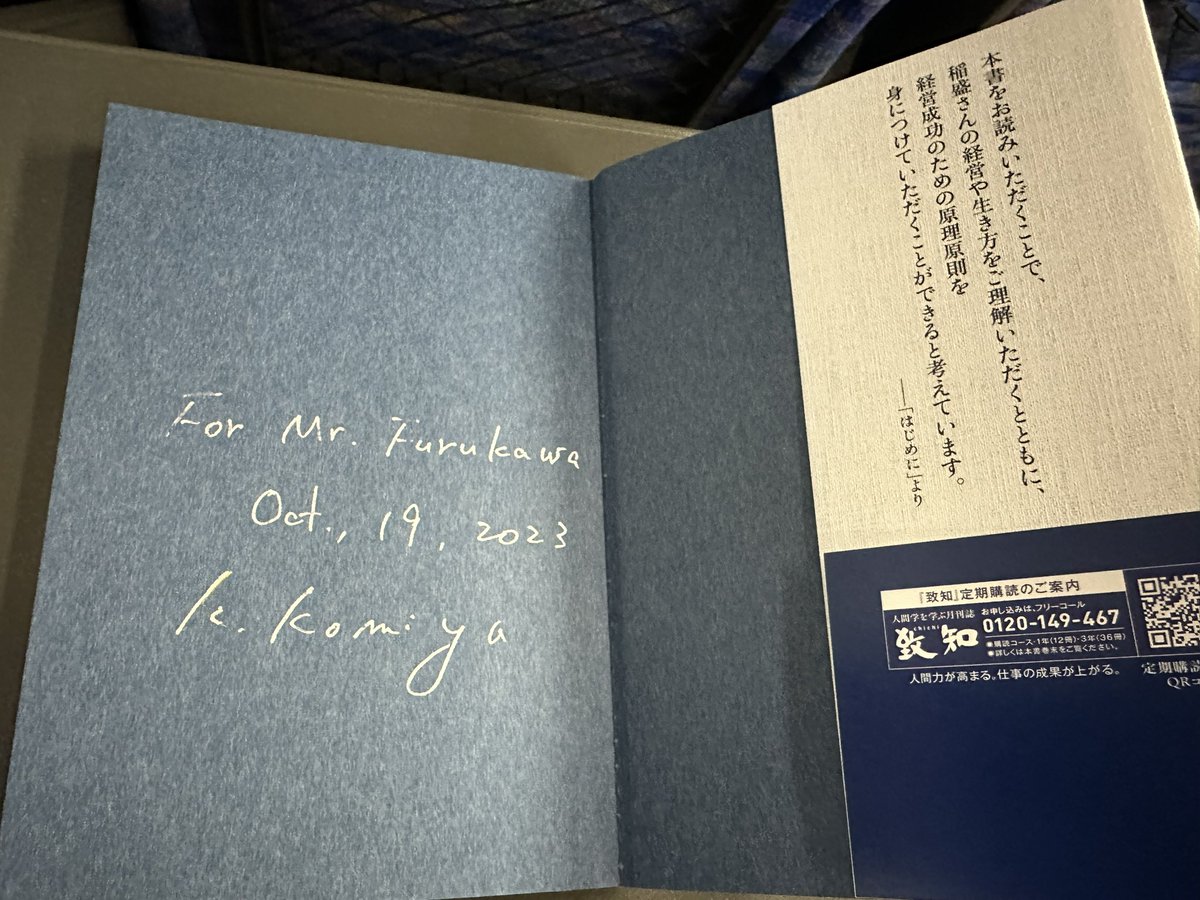 For Mr. Furukawa
Oct., 19, 2023
K. Komiya
本書をお読みいただくことで、
稲盛さんの経営や生き方をご理解いただくとともに、
経営成功のための原理原則を
身につけていただくことができると考えています。
──「はじめに」より
『致知』定期購読のご案内
人間学を学ぶ月刊誌
chichi
致知
お申し込みは、フリーコール
0120-149-467
●購読コース・1年(12冊)・3年(36冊)
●詳しくは本書巻末をご覧ください。
人間力が高まる。仕事の成果が上がる。
定期購読
QRコ